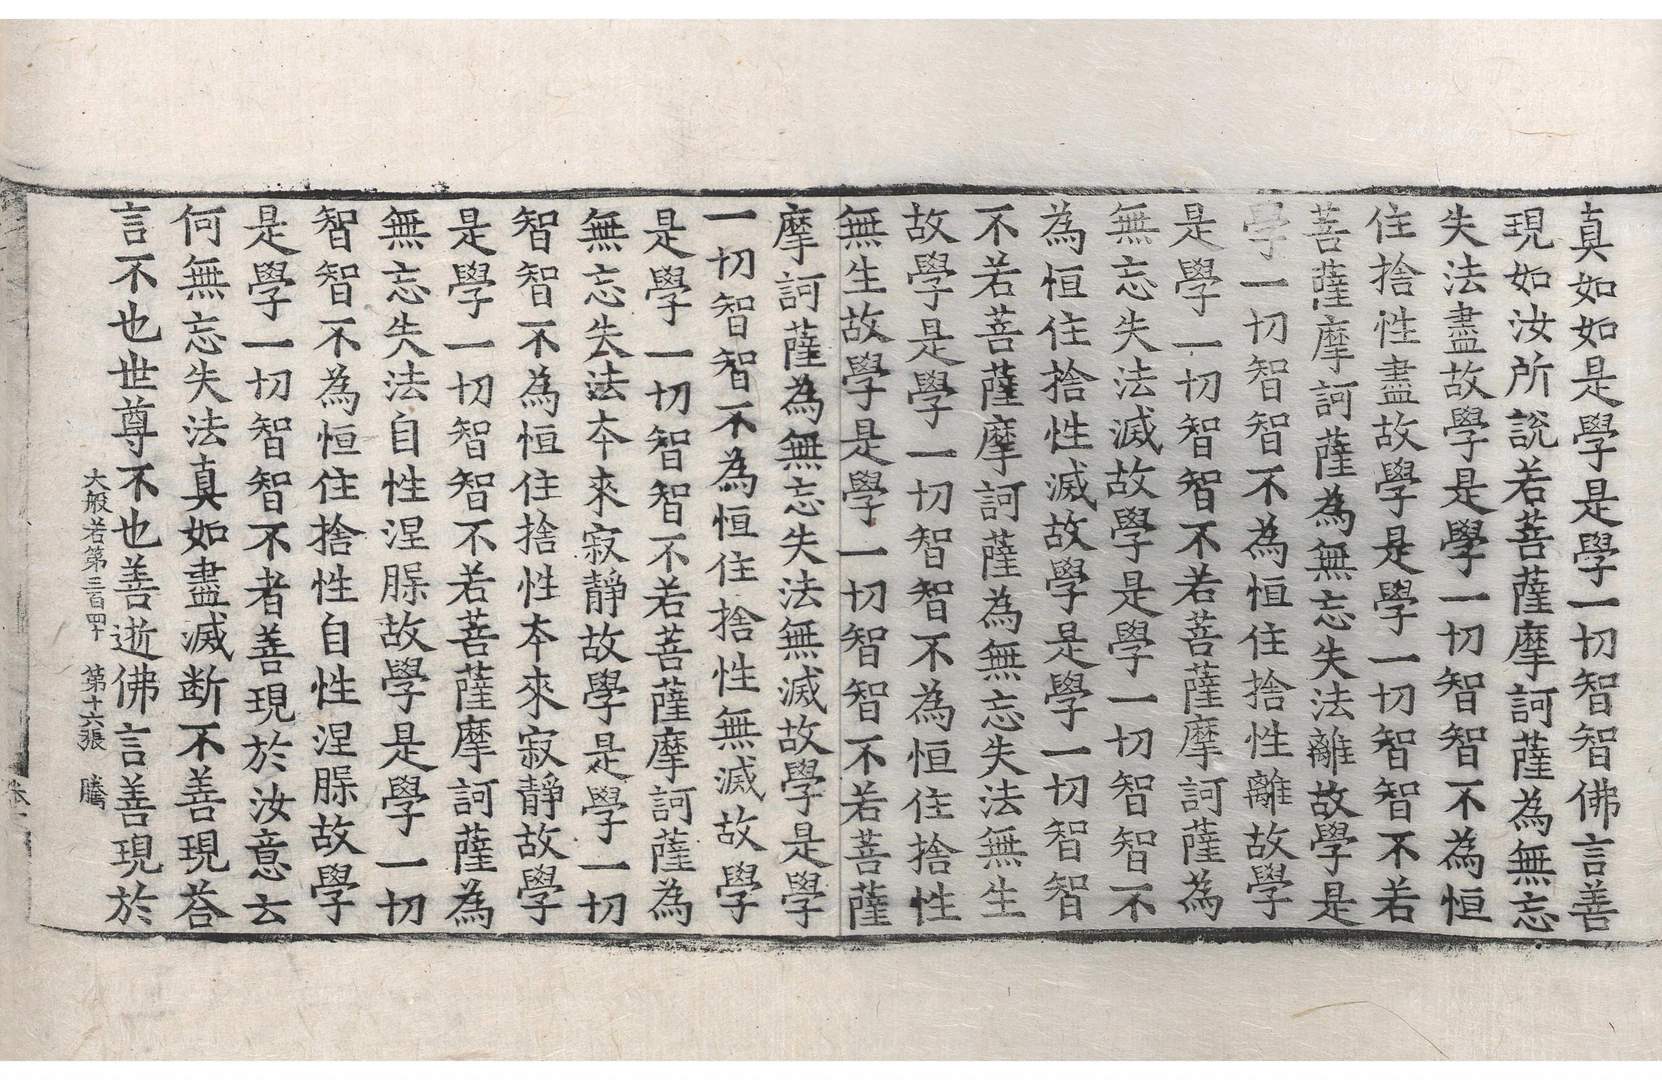 真如如是學是學一切智智佛言善
現如汝所說若菩薩摩訶薩為無忘
失法盡故學是學一切智智不為恒
住捨性盡故學是學一切智智不若
菩薩摩訶薩為無忘失法離故學是
學一切智智不為恒住捨性離故學
是學一切智智不若菩薩摩訶薩為
無忘失法滅故學是學一切智智不
為恒住捨性滅故學是學一切智智
不若菩薩摩訶薩為無忘失法無生
故學是學一切智智不為恒住捨性
無生故學是學一切智智不若菩薩
摩訶薩為無忘失法無滅故學是學
一切智智不為恒住捨性無滅故學
是學一切智智不若菩薩摩訶薩為
無忘失法夲來寂靜故學是學一切
智智不為恒住捨性夲來寂靜故學
是學一切智智不若菩薩摩訶薩為
無忘失法自性涅槃故學是學一切
智智不為恒住捨性自性涅槃故學
是學一切智智不者善現於汝意云
何無忘失法真如盡滅断不善現荅
言不也世尊不也善逝佛言善現於
大般若第三百四十 第十六張 騰